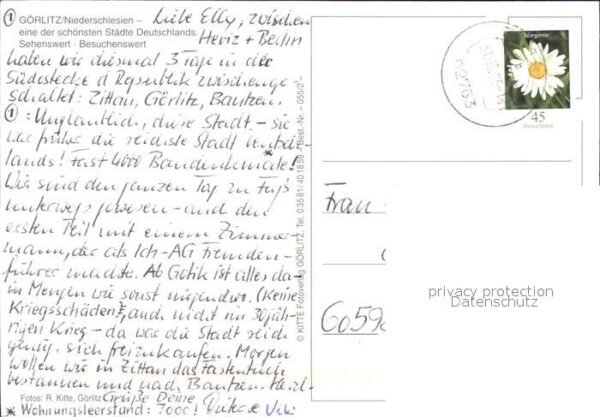 ① GÖRLITZ/Niederschlesien -
eine der schönsten Städte Deutschlands.
Sehenswert · Besuchenswert
Liebe Elly, zwischen
Heviz + Berlin
haben wir diesmal 3 Tage in der
Südostecke d Republik zwischenge-
schaltet: Zittau, Görlitz, Bautzen.
① : Unglaublich, diese Stadt - sie
war früher die reichste Stadt
lands! Fast 4000 Baudenkmäler!
Wir sind den ganzen Tag zu Fuß
unterwegs gewesen - und den
ersten Teil mit einem Zimmer-
mann, der als Ich-AG Fremden-
führer machte. Ab Gotik ist alles da -
in Mengen wie sonst nirgendwo. (Keine
Kriegsschäden), auch nicht im 30jäh-
rigen Krieg - da war die Stadt reich
genug, sich freizukaufen. Morgen
wollen wir in Zittau das Fastentuch
bestaunen und nach Bautzen. Herzl.
Fotos: R. Kitte, Görlitz
Grüße Deine
* Wohnungsleerstand: 7000!
© KITTE Fotoverlag GÖRLITZ, Tel. 03581/401859 - Best.-Nr. - 055/2
Margerite
45
Deutschland
02763
Frau
6059
privacy protection
Datenschutz